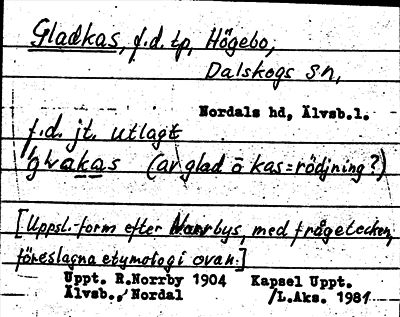 Gladkas, f.d. tp, Högebo,
Dalskogs sn,
Nordals hd, Älvsb.l.
f.d. jt. utlagt
(av glad o kas=rödjning?)
[Uppsl.form efter Norrbys, med frågetecken,
föreslagna etymologi ovan.]
Uppt. R.Norrby 1904 Kapsel Uppt.
Älvsb., Nordal /L.Aks. 1981